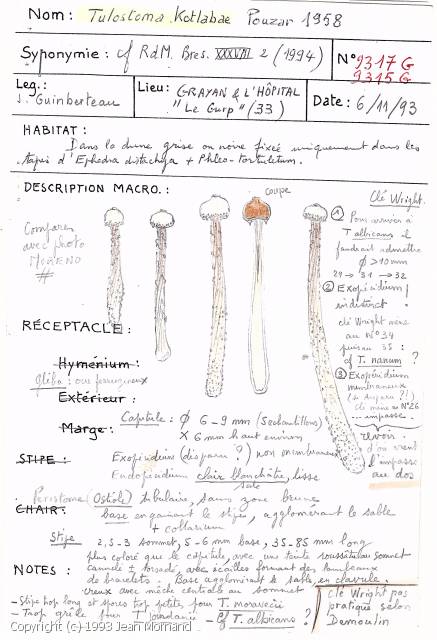 Nom: Tulostoma Kotlabae Pouzar 1958
Synonymie: cf RdM. Bres. XXXVIII 2 (1994)
N° 9317 G
9315 G
Leg.:
J. Guinberteau
Lieu: GRAYAN & L'HÔPITAL
"Le Gurp" (33)
Date: 6/11/93
HABITAT:
Dans la dune grise ou noire fixée uniquement dans les
tapis d'Ephedra distachya + Phleo-tortuletum.
DESCRIPTION MACRO.:
coupe
Comparer
avec photo
MORENO
#
Clé Wright.
① Pour arriver à
T. albicans il
faudrait admettre
Ø > 10 mm
29 → 31 → 32
② Exopéridium
indistinct
clé Wright mène
au N° 34
puis au 35:
cf T. nanum ?
③ Exopéridium
membraneux
clé mène au N° 26
... impasse.
revoir.
d'où vient
l'impasse
au dos
RÉCEPTACLE:
Hyménium:
gléba: ocre ferrugineux
Extérieur:
Marge:
Capitule: Ø 6-9 mm (5 échantillons)
X 6 mm haut environ
STIPE:
Exopéridium (disparu ?) non membraneux
Endopéridium clair blanchâtre, lisse
sale
Péristome (Ostiole) tubulaire, sans zone brune
CHAIR:
base engainant le stipe, agglomérant le sable
+ collarium
Stipe 2,5-3 sommet, 5-6 mm base, 35-85 mm long
plus coloré que le capitule, avec une teinte roussâtre au sommet
cannelé ± torsadé, avec écailles formant des lambeaux
de bracelets. Base agglomérant le sable, en clavicule.
creux avec mèche centrale au sommet
NOTES:
- Stipe trop long et spores trop petites pour T. moravecii
- Trop grêle pour T. giovanellae - cf T. albicans ?
Clé Wright pas
pratique selon
Demoulin
Fungarium (c) 1993 Jean Mornand